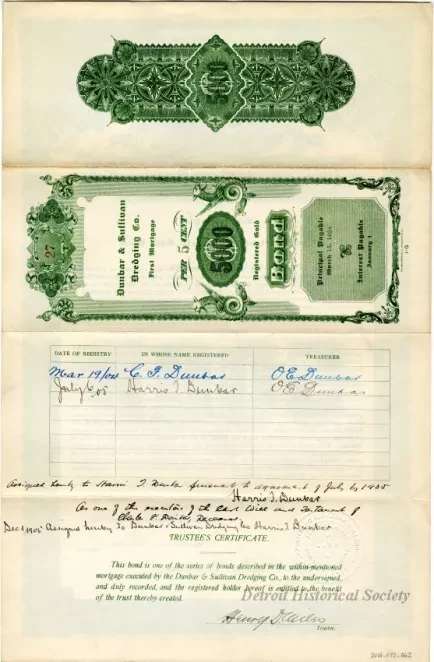 5000
27
Dunbar & Sullivan
Dredging Co.
First Mortgage
5 PER CENT
5000
Registered Gold
Bond
Principal Payable
March 15, 1924
Interest Payable
January 1
DATE OF REGISTRY IN WHOSE NAME REGISTERED TREASURER
Mar 19/04 C. F. Dunbar O E Dunbar
July 6/05 Harris T. Dunbar O E Dunbar
Assigned hereby to Harris T. Dunbar pursuant to agreement of July 6, 1905
Harris T. Dunbar
As one of the executors of the Last Will and Testament of
Dunbar, Deceased
Dec 1905 Assigned hereby to Dunbar & Sullivan Dredging Co Harris T. Dunbar
TRUSTEE'S CERTIFICATE.
This bond is one of the series of bonds described in the within-mentioned
mortgage executed by the Dunbar & Sullivan Dredging Co., to the undersigned,
and duly recorded, and the registered holder hereof is entitled to the benefit
of the trust thereby created.
Detroit Historical Society
Henry
Trustee.